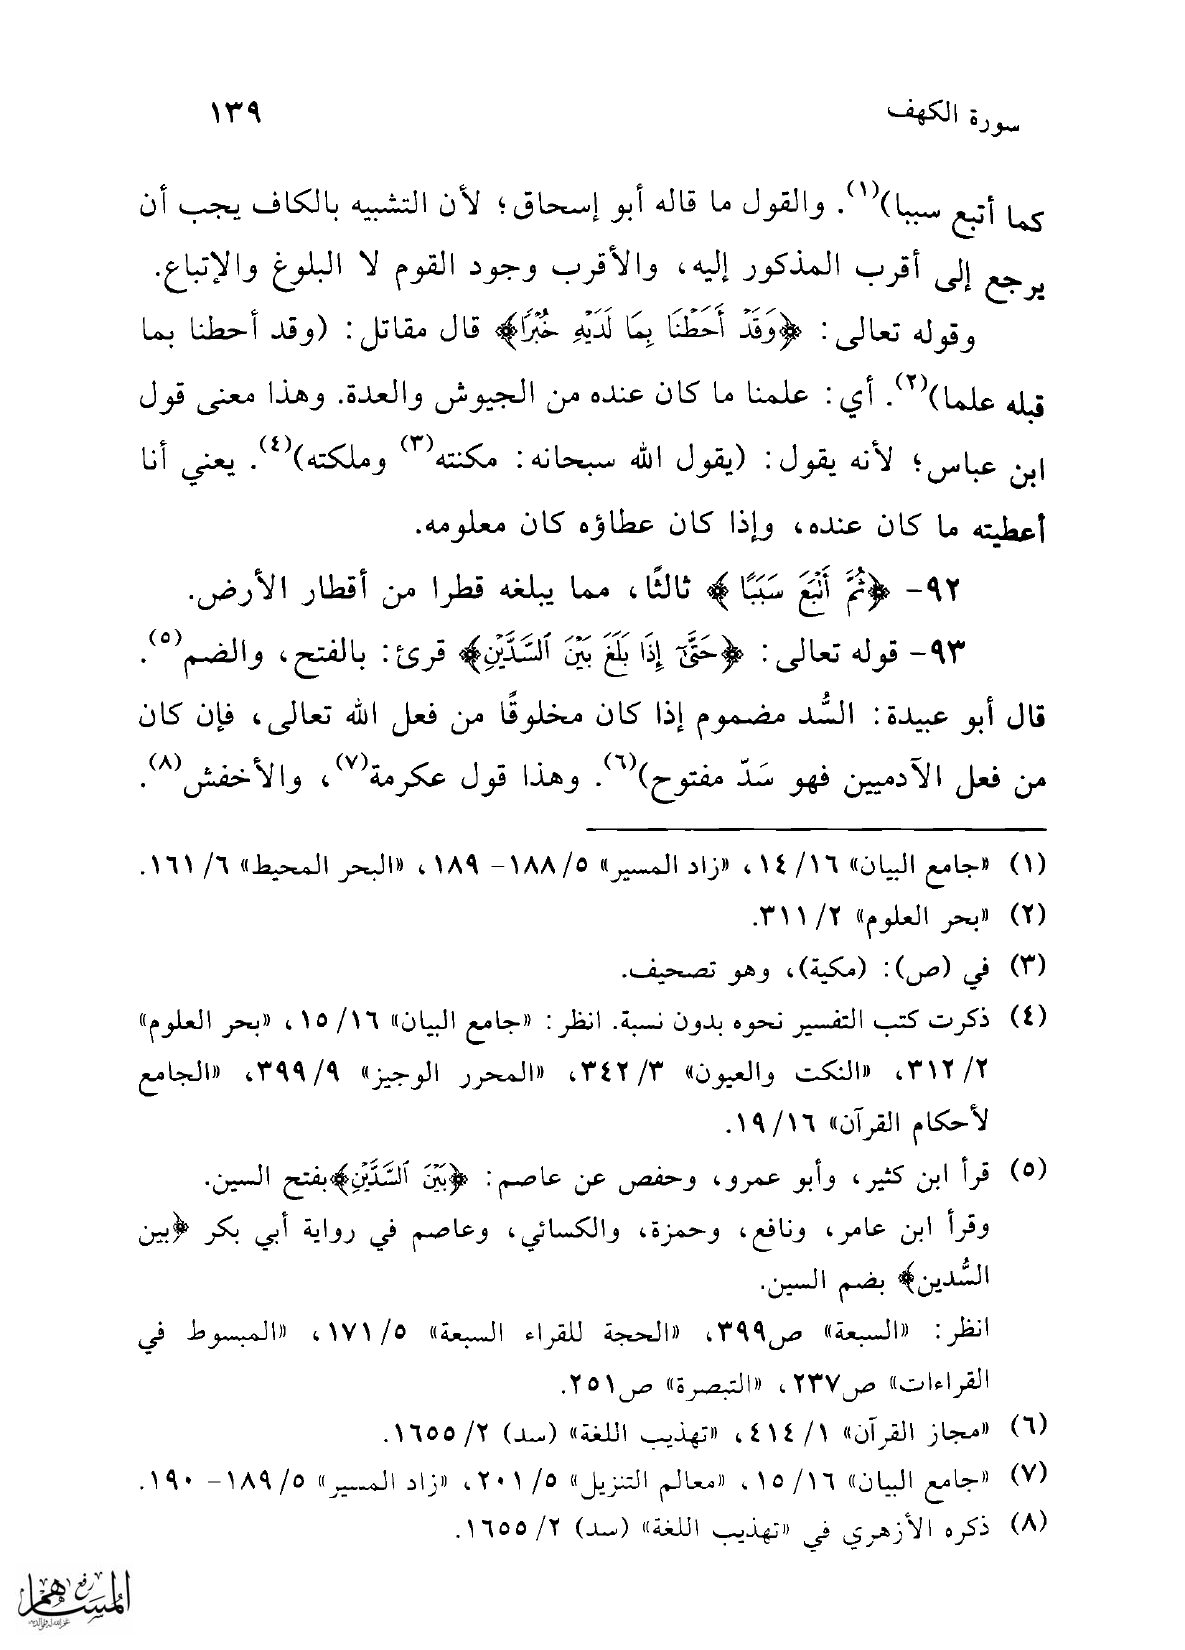 سورة الكهف ١٣٩
كما أتبع سببا)(١). والقول ما قاله أبو إسحاق؛ لأن التشبيه بالكاف يجب أن
يرجع إلى أقرب المذكور إليه، والأقرب وجود القوم لا البلوغ والإتباع.
وقوله تعالى: ﴿وَقَدْ أَحَطْنَا بِمَا لَدَيْهِ خُبْرًا﴾ قال مقاتل: (وقد أحطنا بما
قبله علما)(٢). أي: علمنا ما كان عنده من الجيوش والعدة. وهذا معنى قول
ابن عباس؛ لأنه يقول: (يقول الله سبحانه: مكنته(٣) وملكته)(٤). يعني أنا
أعطيته ما كان عنده، وإذا كان عطاؤه كان معلومه.
٩٢- ﴿ثُمَّ أَتْبَعَ سَبَبًا﴾ ثالثًا، مما يبلغه قطرا من أقطار الأرض.
٩٣- قوله تعالى: ﴿حَتَّىٰٓ إِذَا بَلَغَ بَيْنَ ٱلسَّدَّيْنِ﴾ قرئ: بالفتح، والضم(٥).
قال أبو عبيدة: السُّد مضموم إذا كان مخلوقًا من فعل الله تعالى، فإن كان
من فعل الآدميين فهو سَدّ مفتوح)(٦). وهذا قول عكرمة(٧)، والأخفش(٨).
(١) «جامع البيان» ١٦/ ١٤، «زاد المسير» ٥/ ١٨٨- ١٨٩، «البحر المحيط» ٦/ ١٦١.
(٢) «بحر العلوم» ٢/ ٣١١.
(٣) في (ص): (مكية)، وهو تصحيف.
(٤) ذكرت كتب التفسير نحوه بدون نسبة. انظر: «جامع البيان» ١٦/ ١٥، «بحر العلوم»
٢/ ٣١٢، «النكت والعيون» ٣/ ٣٤٢، «المحرر الوجيز» ٩/ ٣٩٩، «الجامع
لأحكام القرآن» ١٦/ ١٩.
(٥) قرأ ابن كثير، وأبو عمرو، وحفص عن عاصم: ﴿بَيْنَ ٱلسَّدَّيْنِ﴾بفتح السين.
وقرأ ابن عامر، ونافع، وحمزة، والكسائي، وعاصم في رواية أبي بكر ﴿بين
السُّدين﴾ بضم السين.
انظر: «السبعة» ص٣٩٩، «الحجة للقراء السبعة» ٥/ ١٧١، «المبسوط في
القراءات» ص٢٣٧، «التبصرة» ص٢٥١.
(٦) «مجاز القرآن» ١/ ٤١٤، «تهذيب اللغة» (سد) ٢/ ١٦٥٥.
(٧) «جامع البيان» ١٦/ ١٥، «معالم التنزيل» ٥/ ٢٠١، «زاد المسير» ٥/ ١٨٩- ١٩٠.
(٨) ذكره الأزهري في «تهذيب اللغة» (سد) ٢/ ١٦٥٥.
رفع
المساهم